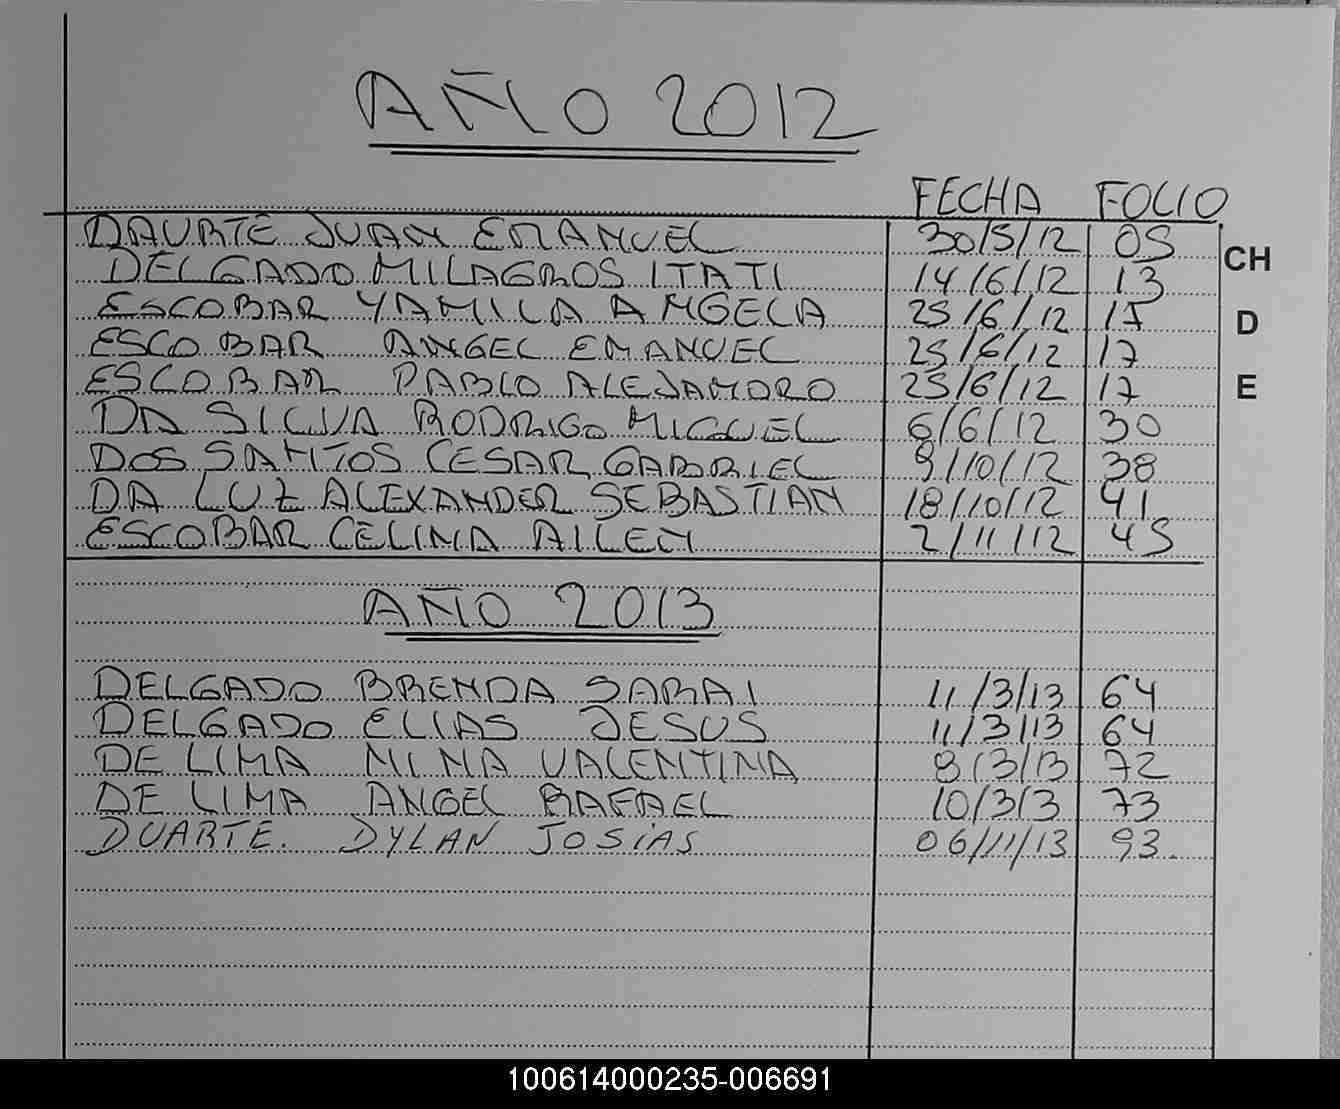 AÑO 2012
FECHA FOLIO
DAUBTE JUAN EMANUEL 30/5/12 05
CH
DELGADO MILAGROS ITATI 14/6/12 13
ESCOBAR YAMILA ANGELA 25/6/12 17
D
ESCOBAR ANGEL EMANUEL 25/6/12 17
ESCOBAR PABLO ALEJANDRO 25/6/12 17
E
DA SILVA RODRIGO MIGUEL 6/6/12 30
DOS SANTOS CESAR GABRIEL 9/10/12 38
DA LUZ ALEXANDER SEBASTIAN 18/10/12 41
ESCOBAR CELINA AILEN 2/11/12 45
AÑO 2013
DELGADO BRENDA SARAI 11/3/13 64
DELGADO ELIAS JESUS 11/3/13 64
DE LIMA NINA VALENTINA 8/3/13 72
DE LIMA ANGEL RAFAEL 10/3/3 73
DUARTE. DYLAN JOSIAS 06/11/13 93.
100614000235-006691